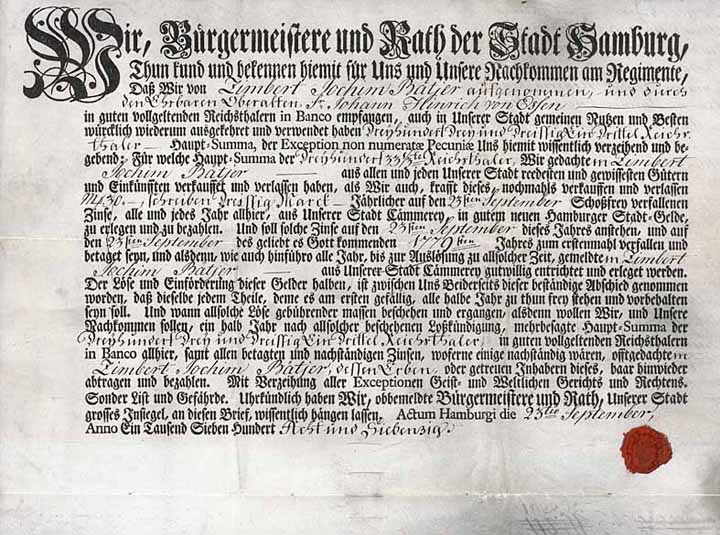 Wir, Bürgermeistere und Rath der Stadt Hamburg,
Thun kund und bekennen hiemit für Uns und Unsere Nachkommen am Regimente,
Daß Wir von Limbert Jochim Bätjer aufgenommen, und durch
den Ehrbaren Oberalten, Fr. Johann Hinrich von Essen
in guten vollgeltenden Reichsthalern in Banco empfangen, auch in Unserer Stadt gemeinen Nutzen und Besten
würcklich wiederum ausgekehret und verwendet haben Dreyhundert Drey und Dreissig Ein Drittel Reichs-
thaler — Haupt-Summa, der Exception non numeratæ Pecuniæ Uns hiemit wissentlich verzeihend und be-
gebend: Für welche Haupt-Summa der Dreyhundert 33 1/3 tel Reichsthaler, Wir gedachtem Limbert
Jochim Bätjer — aus allen und jeden Unserer Stadt reedesten und gewissesten Gütern
und Einkünfften verkauffet und verlassen haben, als Wir auch, krafft dieses, nochmahls verkauffen und verlassen
Mk 30. — schreiben Dreissig Marck — Jährlicher auf den 23sten September Schoßfrey verfallenen
Zinse, alle und jedes Jahr allhier, aus Unserer Stadt Cämmerey, in gutem neuen Hamburger Stadt-Gelde,
zu erlegen und zu bezahlen. Und soll solche Zinse auf den 23sten September dieses Jahres anstehen, und auf
den 23sten September des geliebt es Gott kommenden 1779sten Jahres zum erstenmahl verfallen und
betaget seyn, und alsdenn, wie auch hinführo alle Jahr, bis zur Auslösung zu allsolcher Zeit, gemeldtem Limbert
Jochim Bätjer — aus Unserer Stadt Cämmerey gutwillig entrichtet und erleget werden.
Der Löse und Einförderung dieser Gelder halben, ist zwischen Uns Beiderseits dieser beständige Abschied genommen
worden, daß dieselbe jedem Theile, deme es am ersten gefällig, alle halbe Jahr zu thun frey stehen und vorbehalten
seyn soll. Und wann allsolche Löse gebührender massen beschehen und ergangen, alsdenn wollen Wir, und Unsere
Nachkommen sollen, ein halb Jahr nach allsolcher beschehenen Loßkündigung, mehrbesagte Haupt-Summa der
Dreyhundert Drey und Dreissig Ein Drittel Reichsthaler, in guten vollgeltenden Reichsthalern
in Banco allhier, samt allen betagten und nachständigen Zinsen, woferne einige nachständig wären, offtgedachtem
Limbert Jochim Bätjer, dessen Erben, oder getreuen Inhabern dieses, baar hinwieder
abtragen und bezahlen. Mit Verzeihung aller Exceptionen Geist- und Weltlichen Gerichts und Rechtens.
Sonder List und Gefährde. Uhrkündlich haben Wir, obbemeldte Bürgermeistere und Rath, Unserer Stadt
grosses Insiegel, an diesen Brief, wissentlich hängen lassen. Actum Hamburgi die 23sten September,
Anno Ein Tausend Sieben Hundert Acht und Siebenzig.